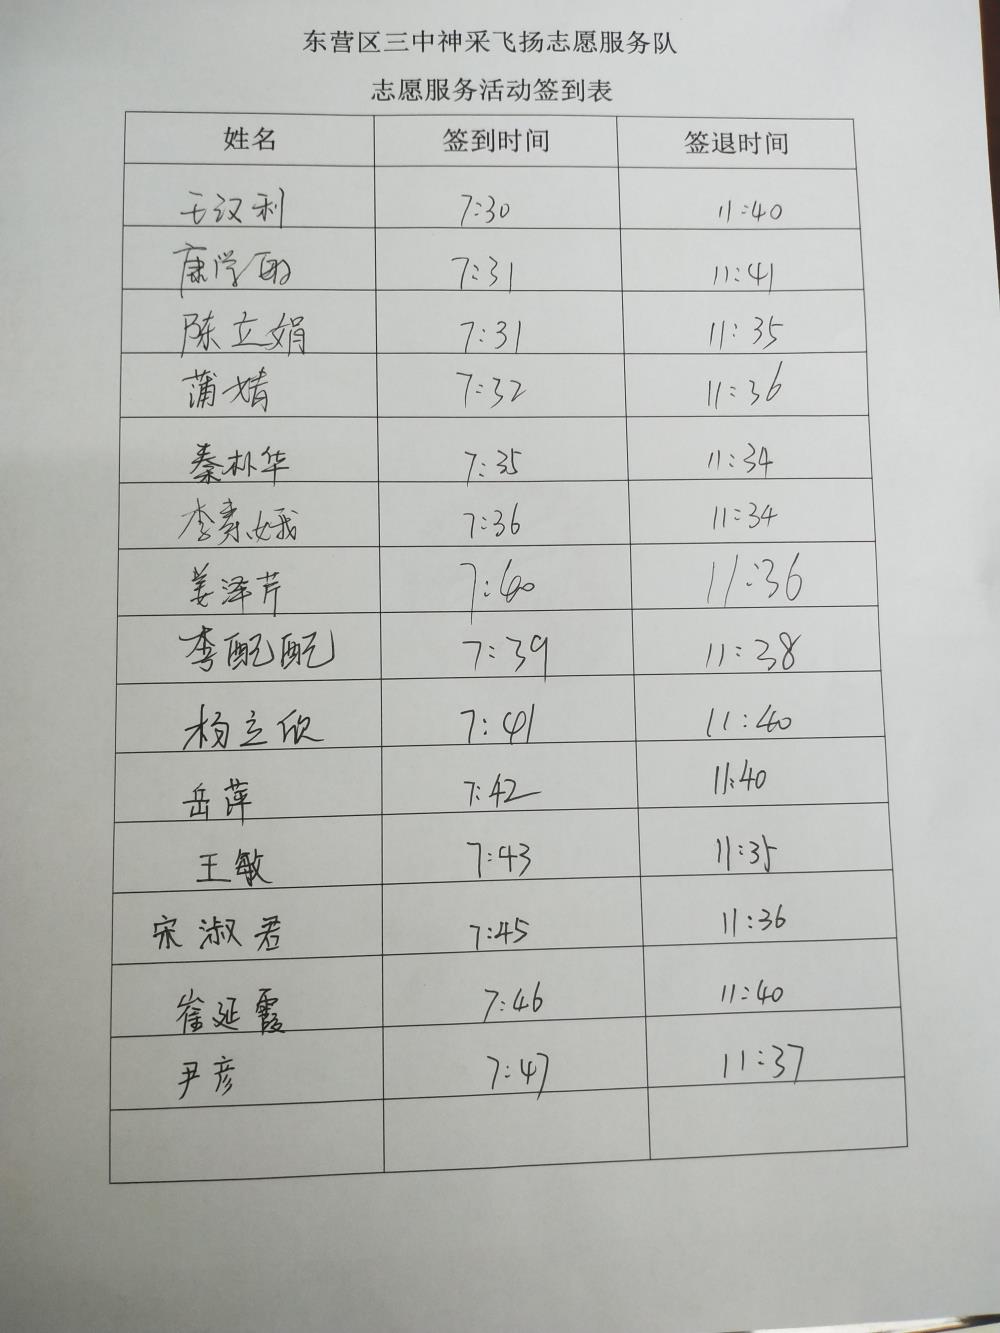 东营区三中神采飞扬志愿服务队
志愿服务活动签到表
姓名 签到时间 签退时间
王汉利 7:30 11:40
康学 7:31 11:41
陈立娟 7:31 11:35
蒲婧 7:32 11:36
秦朴华 7:35 11:34
李素娥 7:36 11:34
姜泽芹 7:40 11:36
李配配 7:39 11:38
杨立欣 7:41 11:40
岳萍 7:42 11:40
王敏 7:43 11:35
宋淑君 7:45 11:36
崔延霞 7:46 11:40
尹彦 7:47 11:37